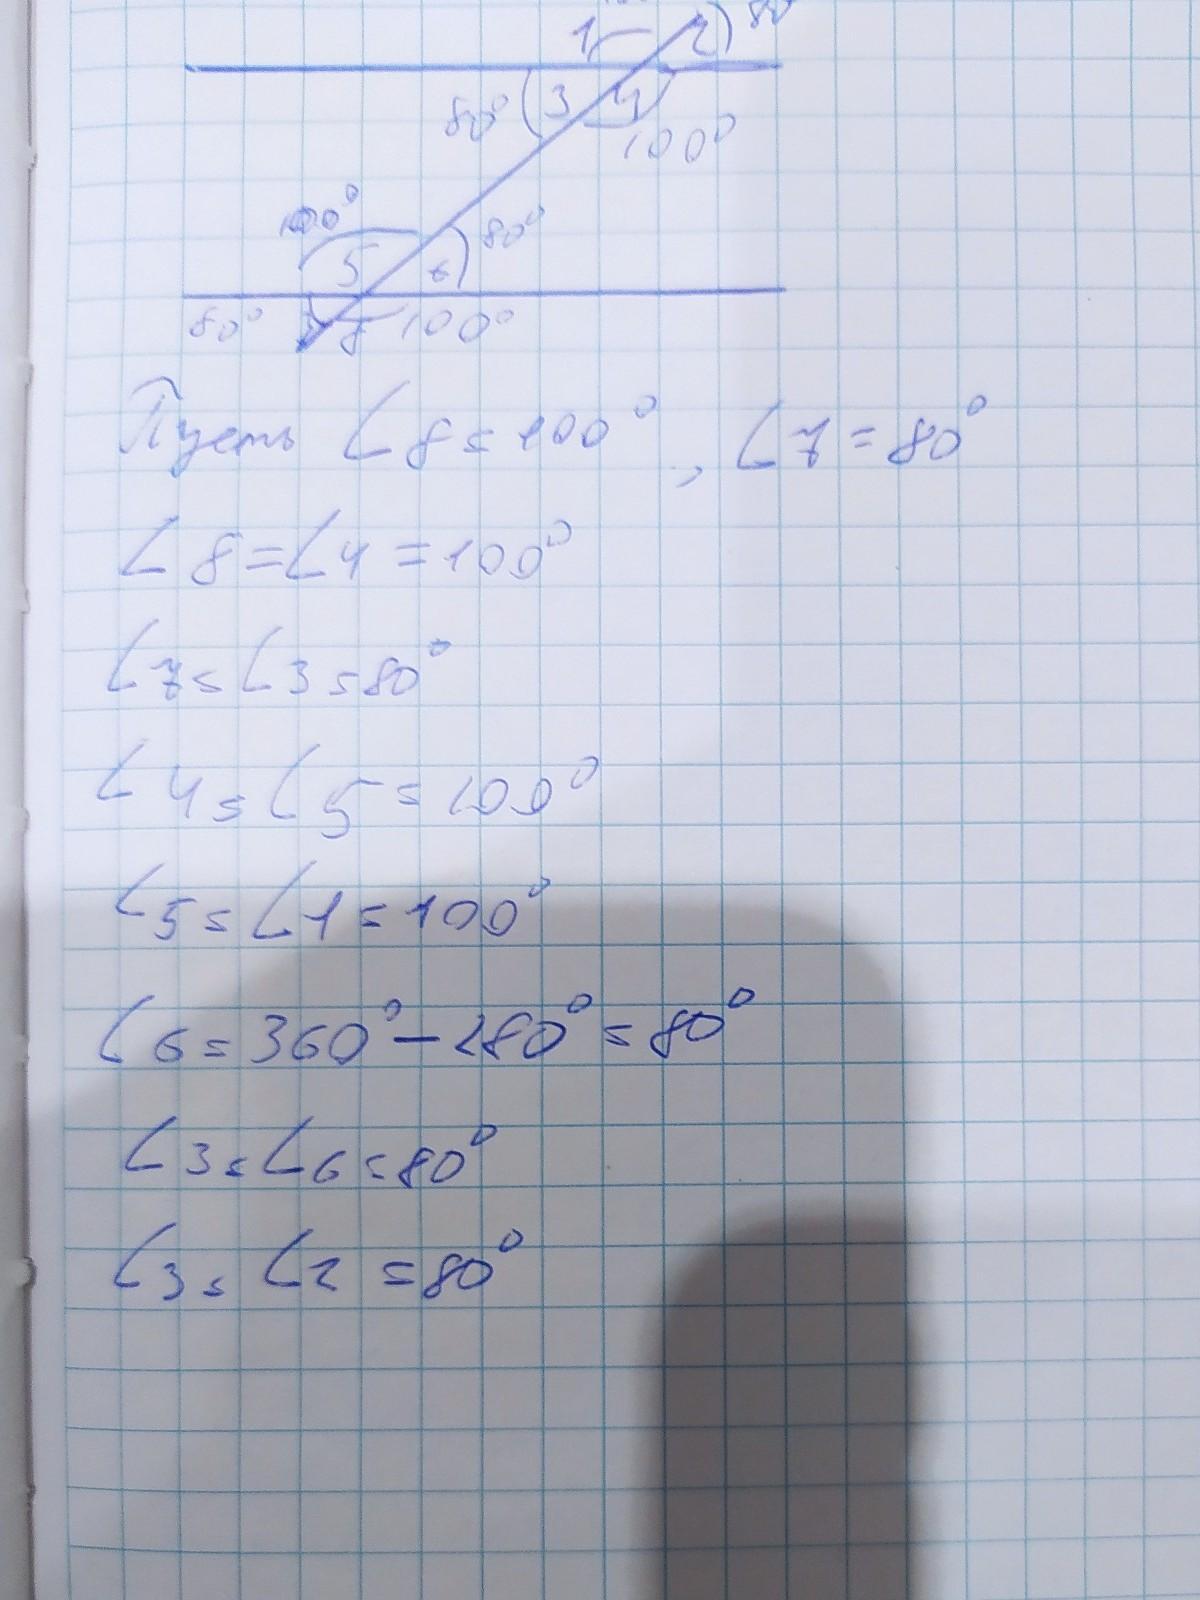 1 2 80°
80° 3 4
100°
100° 80°
5 6
80° 8 100°
Пусть ∠8 = 100°, ∠7 = 80°
∠8 = ∠4 = 100°
∠7 = ∠3 = 80°
∠4 = ∠5 = 100°
∠5 = ∠1 = 100°
∠6 = 360° - 280° = 80°
∠3 = ∠6 = 80°
∠3 = ∠2 = 80°